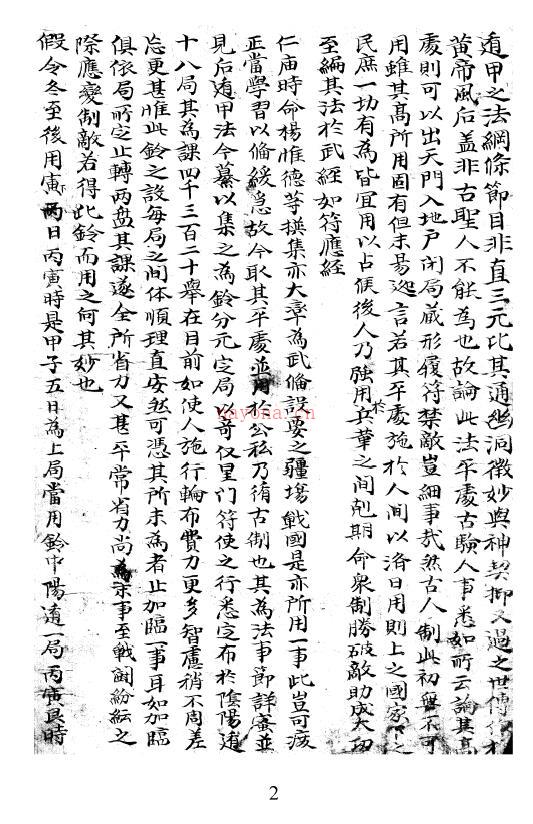 遁甲之法綱條節目非直三元比其通幽洞微妙與神契抑又過之世傳
黄帝風后盖非古聖人不能為也故論此法平處古驗人事悉如所云論其高
處則可以出天門入地户閉局藏形履符禁敵豈細事哉然古人制此初盤不可
用雖其高所用固有但未易㳂言若其平處施於人間以洛日用則上之國家下之
民庶一切有為皆宜用以占候後人乃強用於兵革之間剋期命衆制勝破敵助成大功
至編其法於武經如符應經
仁庙時命楊惟德䓁撰集亦大章為武俻設要之疆埸戰國是亦所用一事此豈可廢
正當學習以俻緩急故今取其平處並用於公私乃循古制也其為法事節詳審並
見后遁甲法今纂以集之為鈴分元定局以竒仪星门符使之行悉定布於陰陽遁
十八局其為課四千三百二十舉在目前如使人施行輪布費力更多智慮稍不周差
忘更甚惟此鈴之設每局之间体順理直安然可憑其所未為者止加臨一事耳如加臨
俱依局所定止轉两盘其課遂全所省力又甚平常省力尚為末事至戰闘紛紜之
際應變制敵若得此鈴而用之何其妙也
假令冬至後用寅丙日丙寅時是甲子五日為上局當用鈴中陽遁一局丙寅艮時
nayona.cn
2